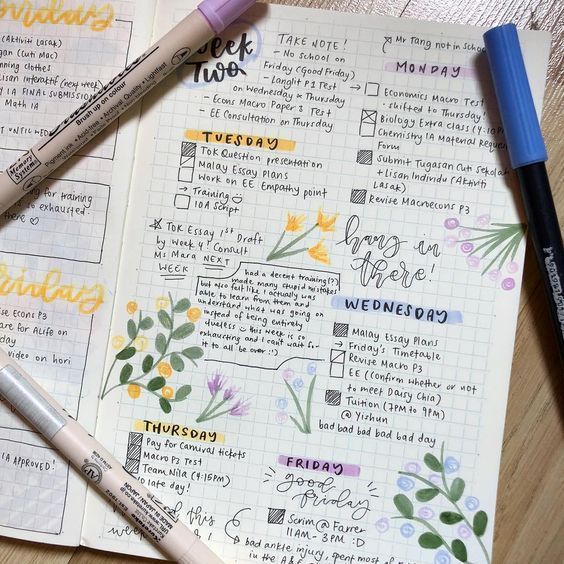 (Aktiviti Lasak)
(Cut Mac)
ning clothes
Lisan Interaktif (next week)
IA FINAL SUBMISSION
Math IA
ng for training
is so exhausted.
there
Friday
ise Econs P3
are for ALife on
day
video on hori
IA APPROVED!
Brush up on colour
Pigment Ink • Archival Quality • Lightfast
Memory System
WEEK
TWO
TAKE NOTE!
- No school on
Friday (Good Friday)
- Langlit P1 Test
on Wednesday → Thursday
- Econs Macro Paper 3 Test
- EE Consultation on Thursday
TUESDAY
TOK Question presentation
Malay Essay Plans
Work on EE Empathy point
→ Training
IOA Script
TOK Essay 1st Draft
by Week 4. Consult
Ms Mara NEXT
WEEK
had a decent training(?)
made many stupid mistakes
but also felt like I actually was
able to learn from them and
understand what was going on
instead of being entirely
clueless this week is so
exhausting and I can't wait for
it to all be over :')
THURSDAY
Pay for Carnival tickets
Macro P3 Test
Team Nila (4:15PM)
late day!
this
week
Mr Tang not in school
MONDAY
→ Economics Macro Test
- shifted to Thursday!
Biology Extra class
Chemistry IA Material Request
Form
Submit Tugasan Cuti Sekolah
+ Lisan Individu (Aktiviti
Lasak)
Revise Macroecons P3
hang in
there!
WEDNESDAY
Malay Essay Plans
→ Friday's Timetable
Revise Macro P3
EE (confirm whether or not
to meet Daisy Chia)
Tuition (7PM to 9PM)
@ Yishun
bad bad bad bad bad day
FRIDAY
good
friday
Scrim @ Farrer
11AM - 3PM :D
→ bad ankle injury, spent most of
in the A&E